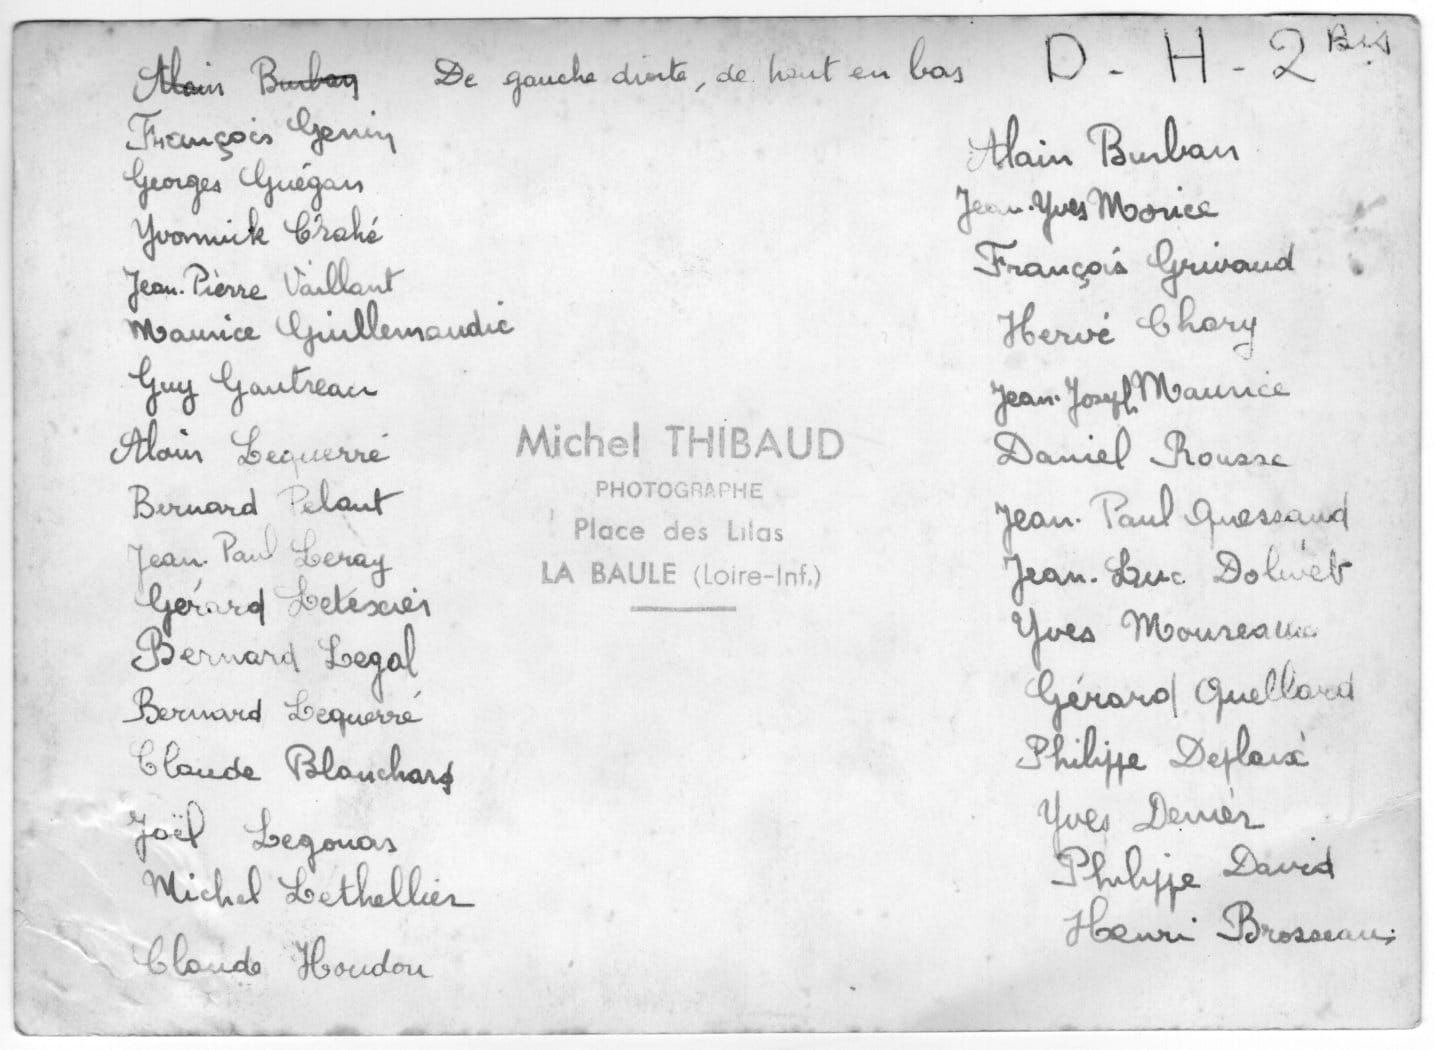 Alain Burban De gauche droite, de haut en bas D - H - 2 Bis
François Genin
Georges Guégan
Yvonnick Crahé
Jean-Pierre Vaillant
Maurice Guillemaudic
Guy Gautreau
Alain Lequerré
Bernard Pelaut
Jean-Paul Leray
Gérard Letexier
Bernard Legal
Bernard Lequerré
Claude Blanchard
Joël Legouas
Michel Lethellier
Claude Houdou
Michel THIBAUD
PHOTOGRAPHE
Place des Lilas
LA BAULE (Loire-Inf.)
Alain Burban
Jean-Yves Morice
François Grivaud
Hervé Chary
Jean-Joseph Maurice
Daniel Rousse
Jean-Paul Quessaud
Jean-Luc Dolivet
Yves Moureau
Gérard Quellard
Philippe Deplaix
Yves Denier
Philippe David
Henri Brosseau.